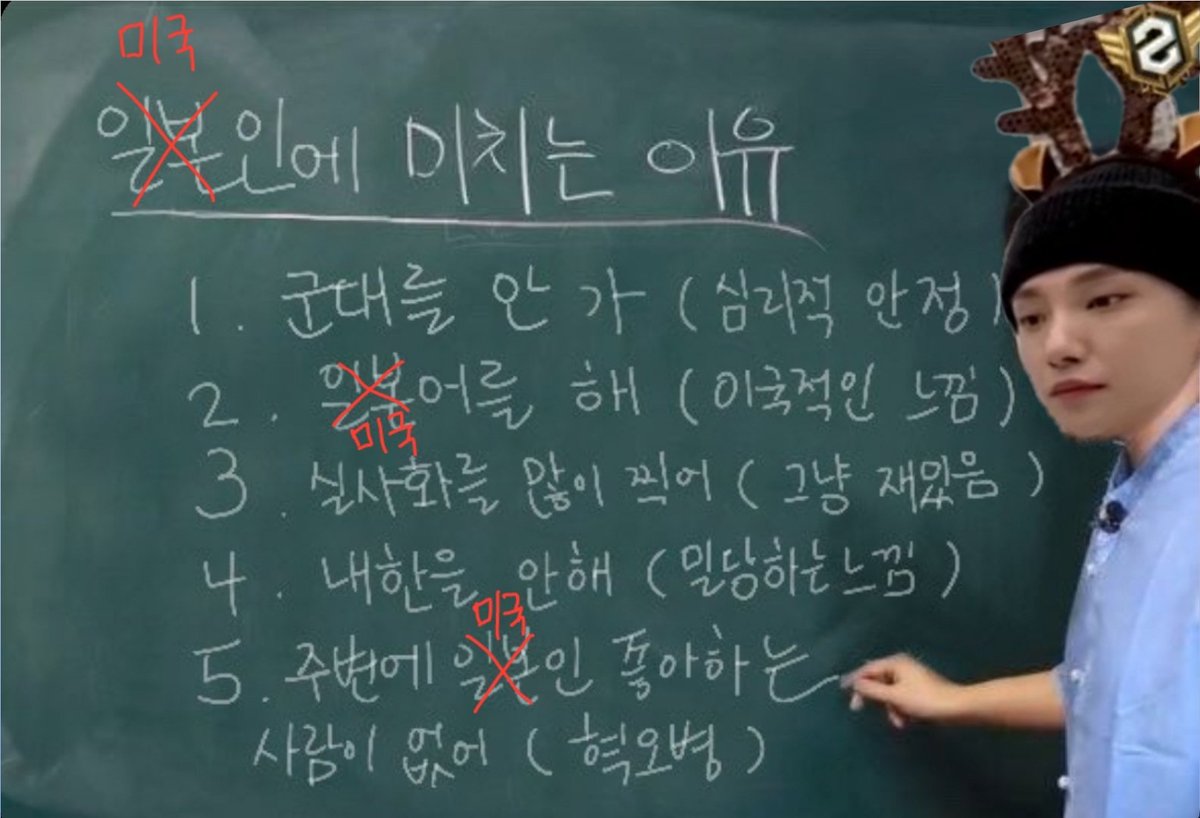 미국
일본인에 미치는 이유
1. 군대를 안 가 (심리적 안정)
2. 일본어를 해 (이국적인 느낌)
미국
3. 실사화를 많이 찍어 (그냥 재밌음)
4. 내한을 안해 (밀당하는느낌)
미국
5. 주변에 일본인 좋아하는
사람이 없어 (혁오병)
2